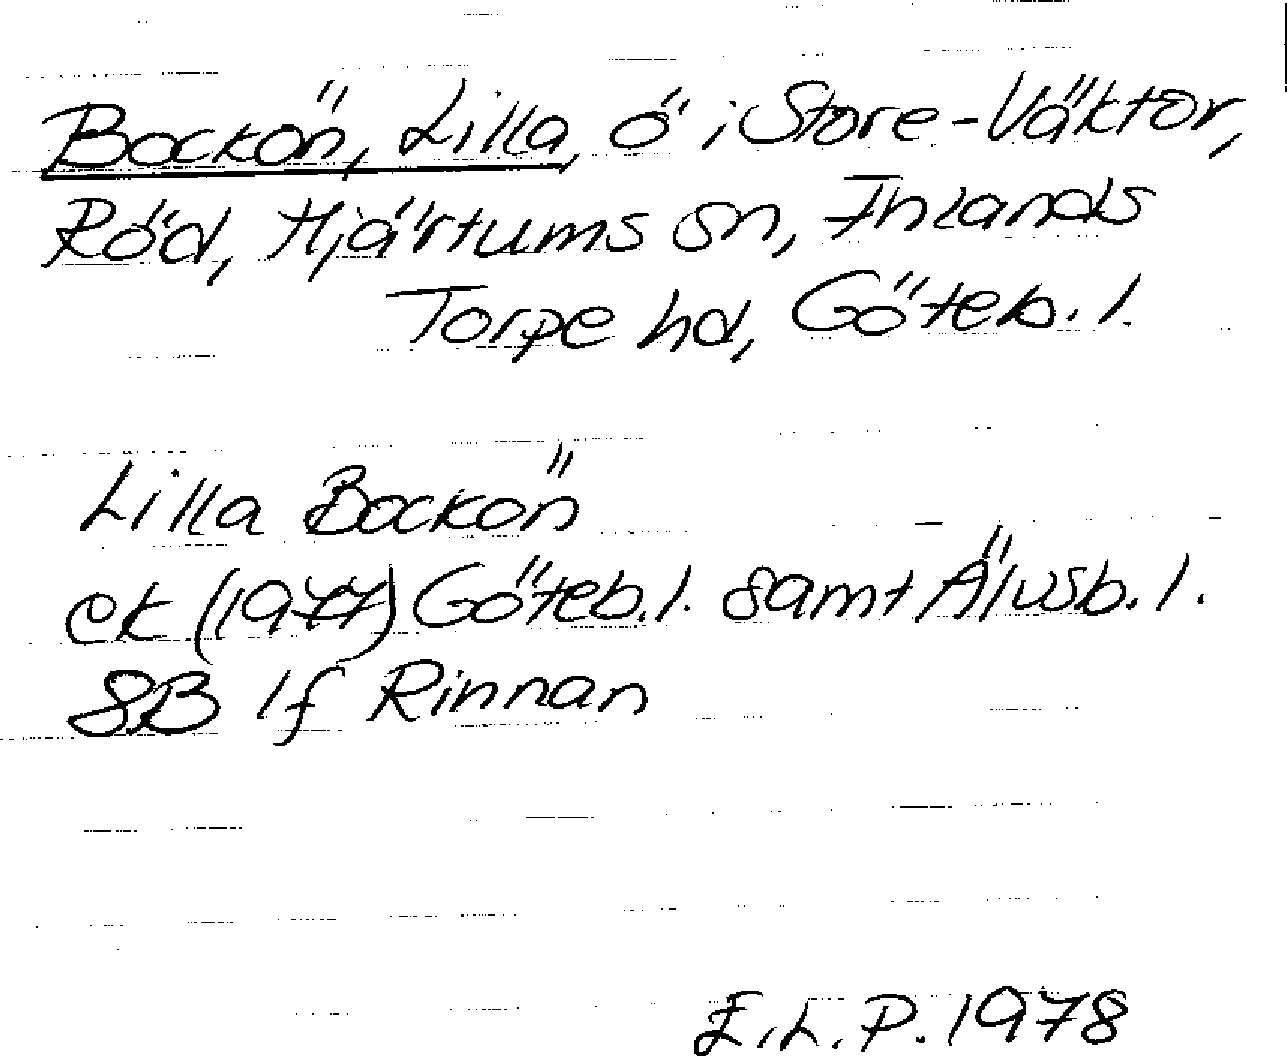 Bockön, Lilla, ö i Store-Väktor,
Röd, Hjärtums sn, Inlands
Torpe hd, Göteb. l.
Lilla Bockön
ek (1977) Göteb. l. samt Älvsb. l.
8B 1f Rinnan
E.L.P. 1978